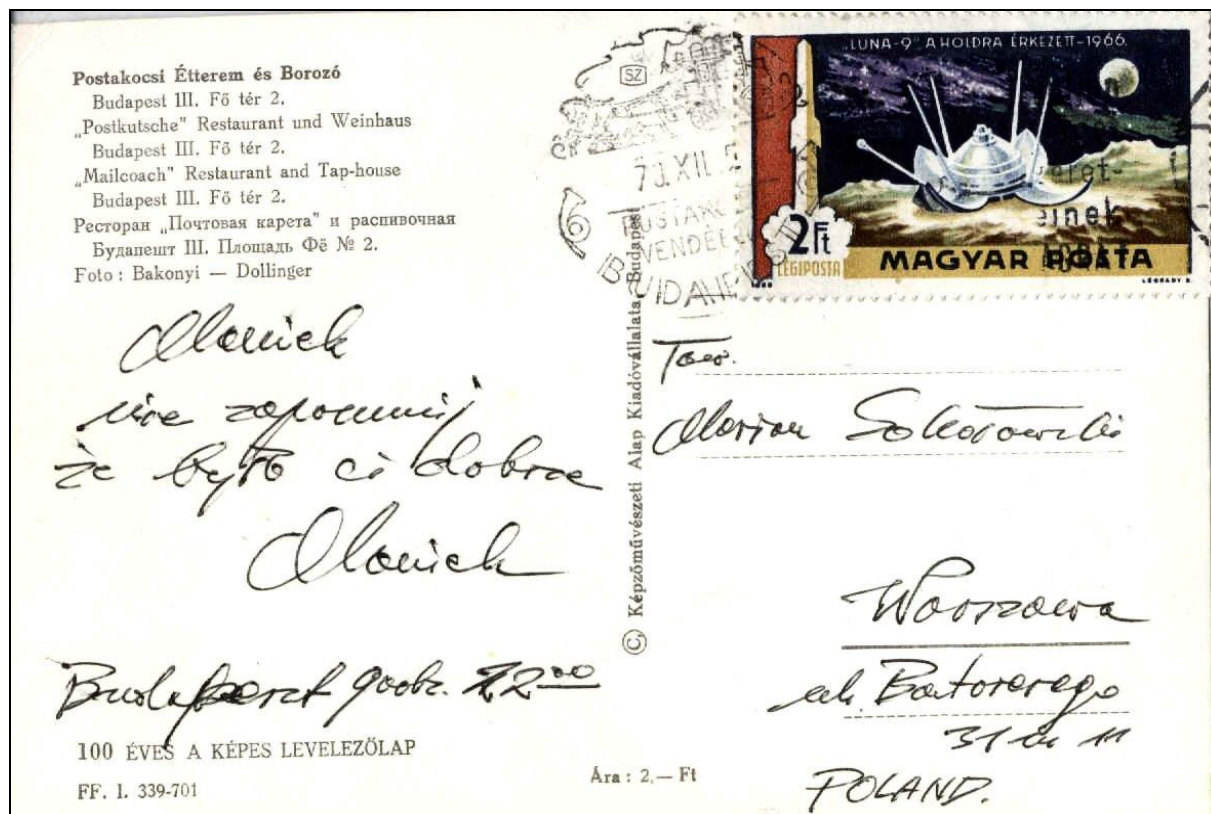 Postakocsi Étterem és Borozó
Budapest III. Fő tér 2.
„Postkutsche" Restaurant und Weinhaus
Budapest III. Fő tér 2.
„Mailcoach" Restaurant and Tap-house
Budapest III. Fő tér 2.
Ресторан „Почтовая карета" и распивочная
Будапешт III. Площадь Фё № 2.
Foto : Bakonyi — Dollinger
Maniek
nie zapomnij
że było ci dobrze
Maniek
Budapeszt godz. 22 00
100 ÉVES A KÉPES LEVELEZŐLAP
FF. I. 339-701
© Képzőművészeti Alap Kiadóvállalata, Budapest
Ára : 2,— Ft
SZ
XII.
6
„LUNA-9" A HOLDRA ÉRKEZETT-1966.
2 Ft
LÉGIPOSTA
MAGYAR POSTA
LÉGRÁDY S.
Tow.
Marian Sokołowski
Warszawa
ul. Batorego
31 m 11
POLAND.